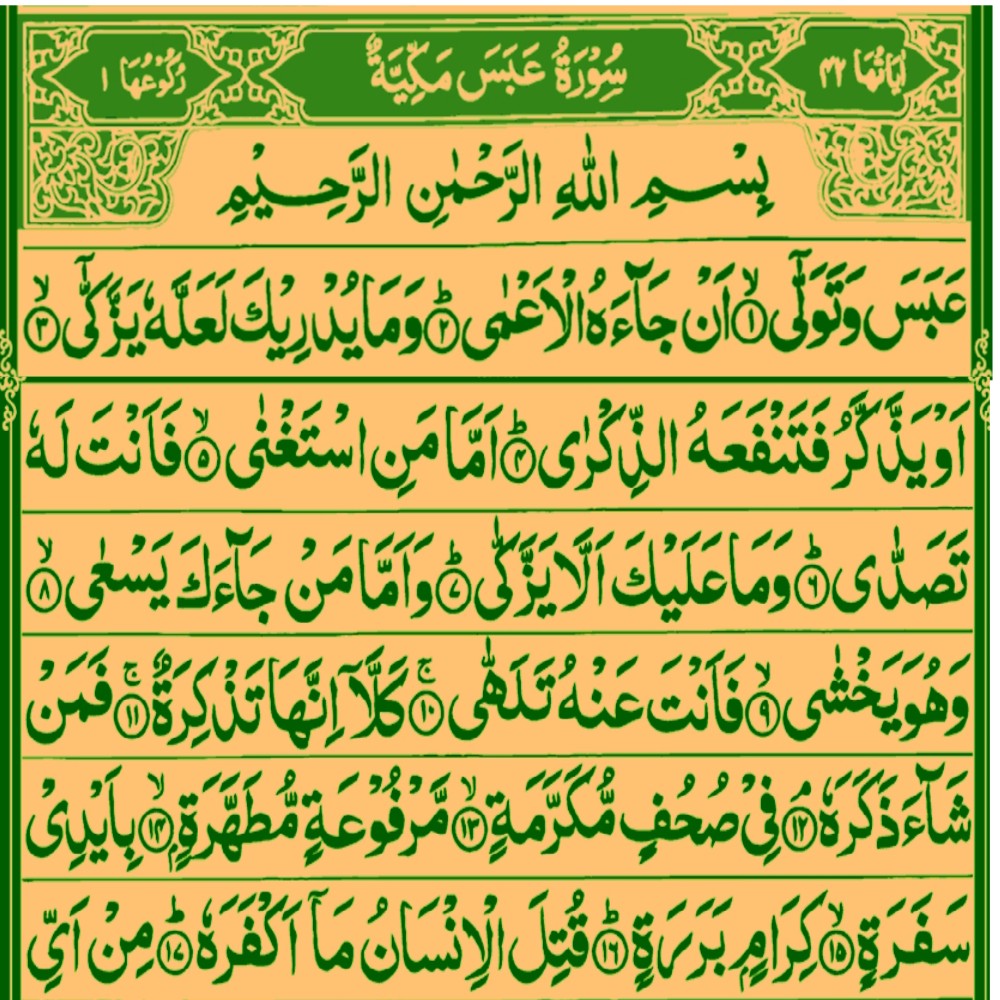 اٰيَاتُهَا ٤٢ سُوْرَةُ عَبَسَ مَكِّيَّةٌ رُكُوْعُهَا ١
بِسْمِ اللّٰهِ الرَّحْمٰنِ الرَّحِيْمِ
عَبَسَ وَتَوَلّٰٓى ۙ﴿١﴾ اَنْ جَآءَهُ الْاَعْمٰى ؕ﴿٢﴾ وَمَا يُدْرِيْكَ لَعَلَّهٗ يَزَّكّٰٓى ۙ﴿٣﴾
اَوْ يَذَّكَّرُ فَتَنْفَعَهُ الذِّكْرٰى ؕ﴿٤﴾ اَمَّا مَنِ اسْتَغْنٰى ۙ﴿٥﴾ فَاَنْتَ لَهٗ
تَصَدّٰى ؕ﴿٦﴾ وَمَا عَلَيْكَ اَلَّا يَزَّكّٰى ؕ﴿٧﴾ وَاَمَّا مَنْ جَآءَكَ يَسْعٰى ۙ﴿٨﴾
وَهُوَ يَخْشٰى ۙ﴿٩﴾ فَاَنْتَ عَنْهُ تَلَهّٰى ۚ﴿١٠﴾ كَلَّاۤ اِنَّهَا تَذْكِرَةٌ ۚ﴿١١﴾ فَمَنْ
شَآءَ ذَكَرَهٗ ۘ﴿١٢﴾ فِيْ صُحُفٍ مُّكَرَّمَةٍ ۙ﴿١٣﴾ مَّرْفُوْعَةٍ مُّطَهَّرَةٍۭ ۙ﴿١٤﴾ بِاَيْدِيْ
سَفَرَةٍ ۙ﴿١٥﴾ كِرَامٍۭ بَرَرَةٍ ؕ﴿١٦﴾ قُتِلَ الْاِنْسَانُ مَاۤ اَكْفَرَهٗ ؕ﴿١٧﴾ مِنْ اَيِّ